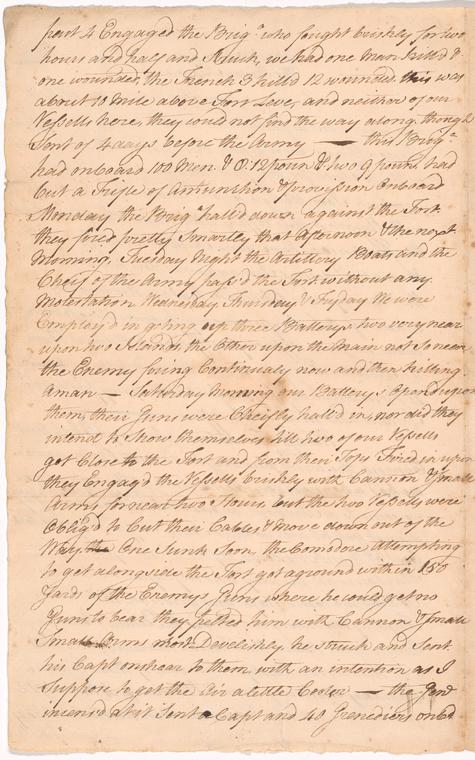 past 4 Engaged the Brign. who fought briskly for two
hours and half and Struck, we had one Man kill'd &
one wounded, the French 3 kill'd 12 wounded. this was
about 10 Mile above Fort Leve, and neither of our
Vessells here, they could not find the way along though
Sent of 4 days before the Army — this Brign.
had onboard 100 Men & 8. 12 pound. & two 9 pound. had
but a Trifle of Amunition & provision Onboard
Monday the Brign. hall'd down against the Fort
they fired pretty Smartly that Afternoon & the next
Morning, Tuesday Night the Artillery Boats and the
Cheif of the Army pass'd the Fort without any
Molestation Wednesday Thursday & Fryday We were
Employ'd in geting up three Batterys two very near
upon two Islands, the Other upon the Main not So near
the Enemy firing Continualy now and then killing
a man — Saturday Morning our Batterys Opend upon
them, their Guns were Cheifly hall'd in, nor did they
intend to Show themselves till two of our Vessells
got Close to the Fort and from their Tops Fired in upon
they Engag'd the Vessells briskly with Cannon & Small
Arms for near two Hours but the two Vessells were
Oblig'd to Cut their Cables & Move down out of the
Way, One Sunk Soon, the Comodore Attempting
to get alongside the Fort got aground within 150
Yards of the Enemys Guns where he could get no
Guns to bear they pelted him with Cannon & Small
Small Arms most Develishly he Struck and Sent
his Capt onshear to them, with an intention as I
Suppose to get the Air a little Cooler — the Genl
incens'd at it Sent a Capt and 40 Grenediers onbd